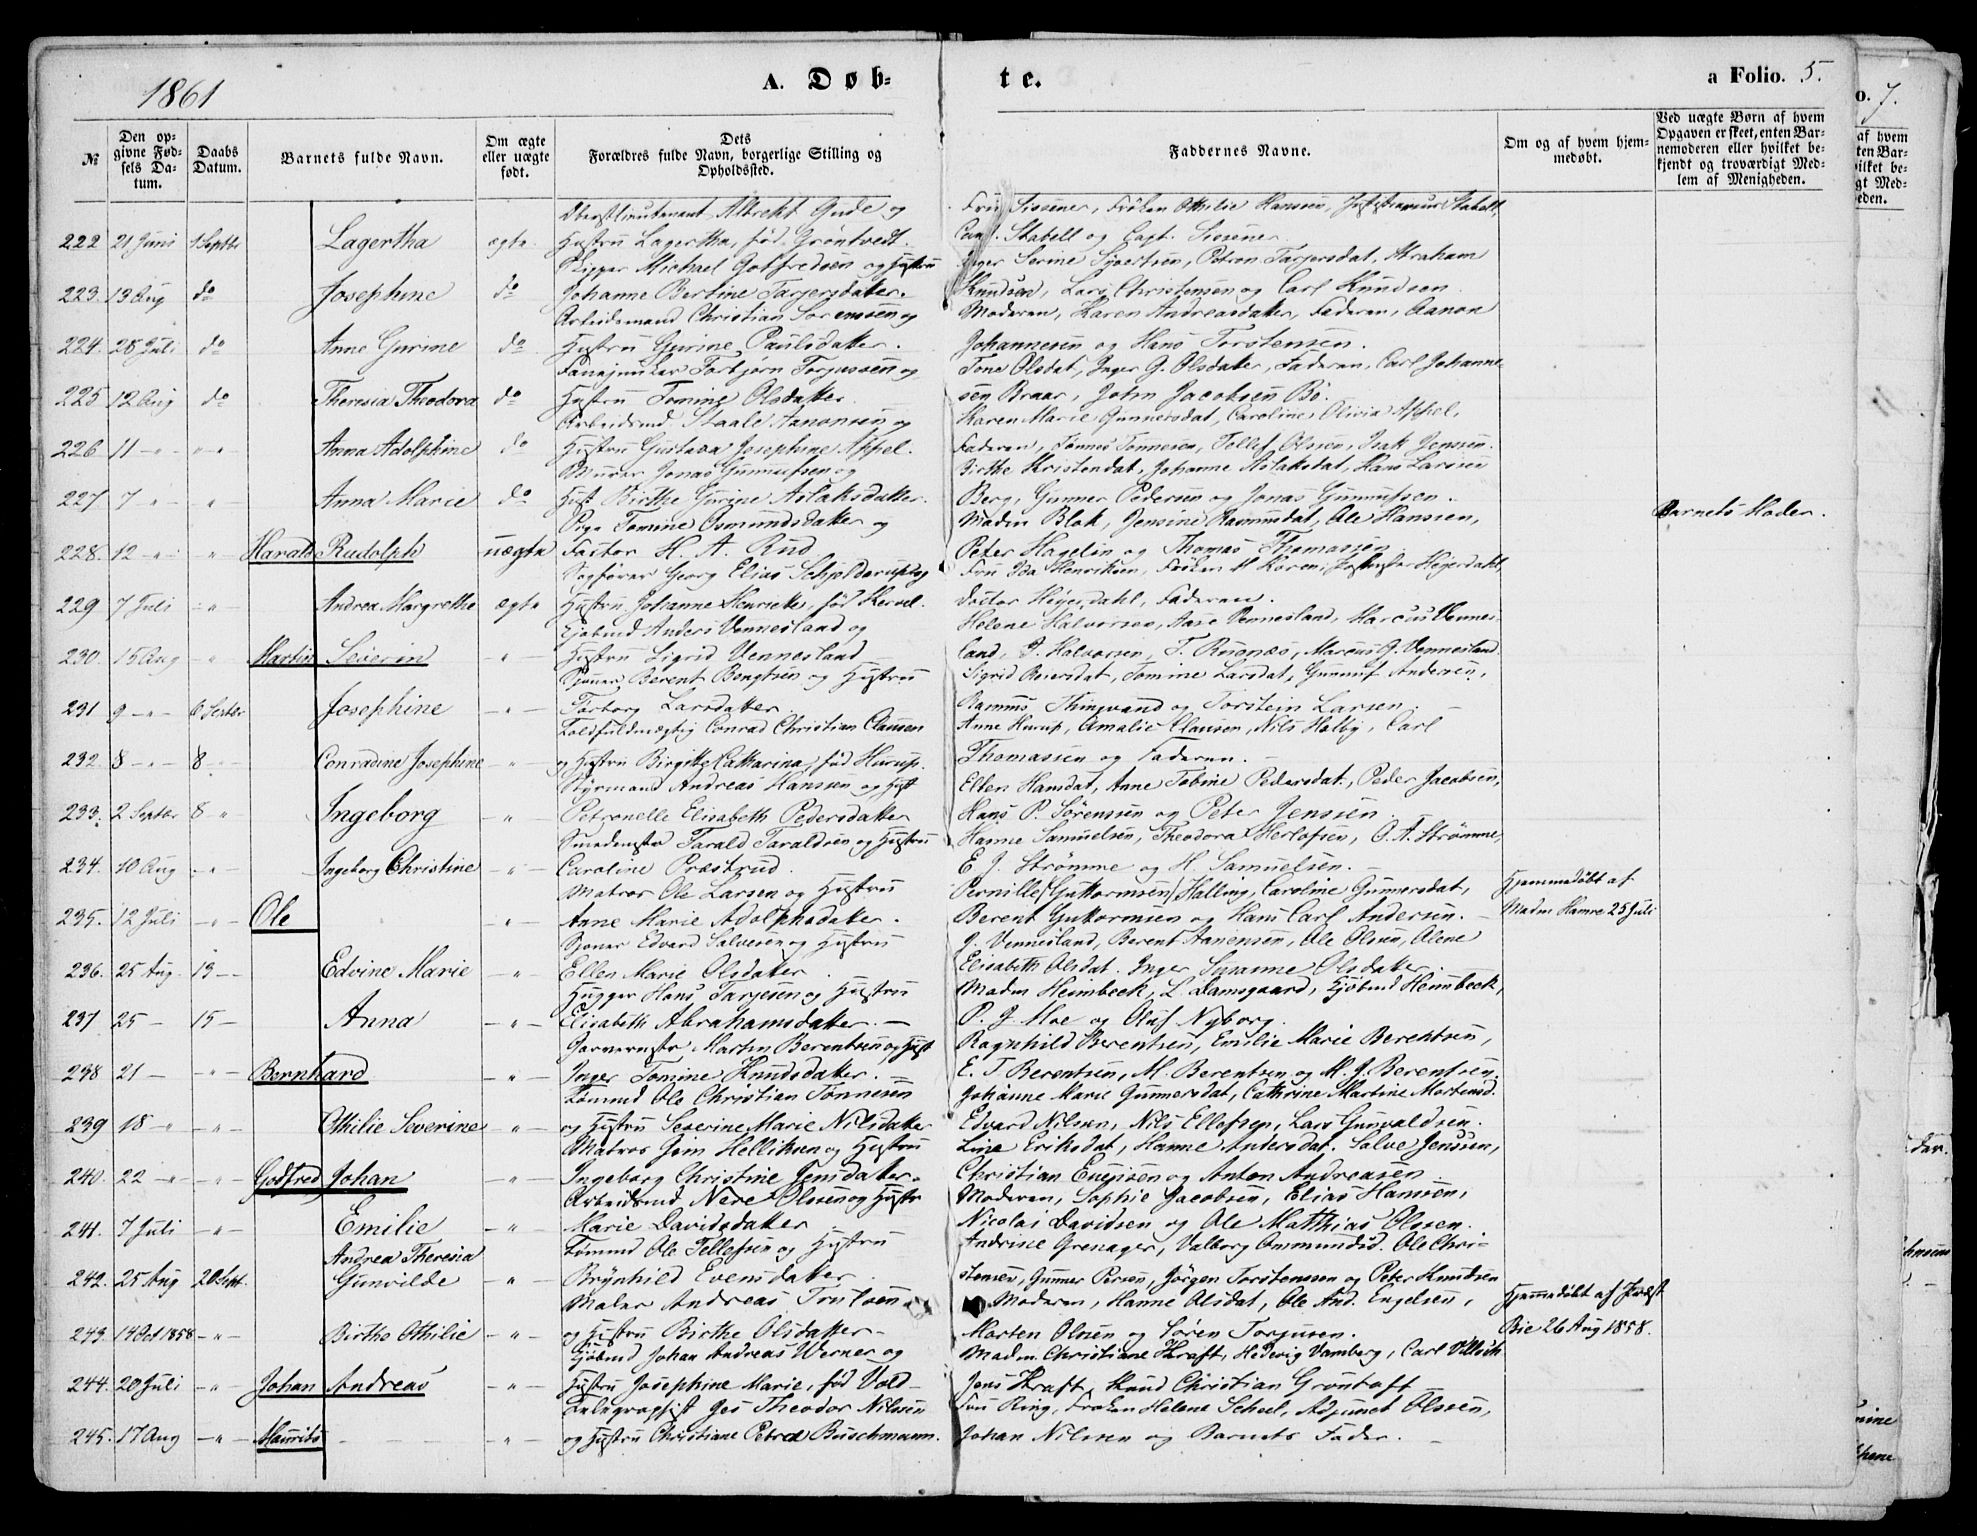 1861
A. Døb-
te.
a Folio. 5.
o. 7.
№
Den opgivne Fødsels Datum.
Daabs Datum.
Barnets fulde Navn.
Om ægte eller uægte født.
Dets Forældres fulde Navn, borgerlige Stilling og Opholdssted.
Faddernes Navne.
Om og af hvem hjemmedøbt.
Ved uægte Børn af hvem Opgaven er skeet, enten Barnemoderen eller hvilket bekjendt og troværdigt Medlem af Menigheden.
Oberstlieutenant Albrekt Gude og
Fru Sissener, Frøken Othilie Hanssen,
222 21 Juni 1 Septbr Lagertha ægte Hustru Lagertha, fød Grøntvedt.
Stabell og Capt. Sissener
Skipper Michael Gotfredsen og Hustru
Inger Serine Syvertsen, Petron Tarjersdat, Abraham
223. 13 Aug do Josephine do Johanne Bertine Tarjersdatter.
Knudsen, Lars Christensen og Carl Knudsen
Arbeidsmand Christian Sørenssen og
Moderen, Karen Andreasdatter, Faderen, Aanon
224. 28 Juli do Anne Gurine do Hustru Gurine Paulsdatter.
Johannesen og Hans Torstensen.
Fanejunker Torbjørn Torjussen og
Tone Olsdat, Inger G. Olsdatter, Faderen, Carl Johanne-
225 12 Aug do Theresia Theodora do Hustru Tomine Olsdatter.
sen Braar, John Jacobsen Bø.
Arbeidsmd Staale Aanonsen og
Karen Marie Gunnersdat, Caroline Olivia Appel,
226 11 - " - " - Anna Adolphine do Hustru Gustava Josephine Appel.
Faderen, Tønnes Tønnesen, Tellef Olsen, Isak Jenssen.
Murer Jonas Gunnufsen og
Birthe Kristendat, Johanne Aslaksdat, Hans Larsen
227 7 - " - " - Anna Marie do Hust Birthe Gurine Aslaksdatter.
Berg, Gunner Pedersen og Jonas Gunnufsen.
Barnets Moder.
Pige Tomine Osmundsdatter og
Madm Blok, Jensine Rasmusdat, Ole Hanssen,
228. 12 - " - " Harald Rudolph uægte Factor H. A. Rud
Peter Hagelin og Thomas Thomassen
Sagfører Georg Elias Schjoldarup og
Fru Ida Henriksen, Frøken M Koren, Heyerdahl,
229 7 Juli - " - Andrea Margrethe ægte Hustru Johanne Henriette, fød Kervel.
Doctor Heyerdahl, Faderen.
Kjøbmd Anders Vennesland og
Helene Halvorsen, Aase Vennesland, Marcus Vennes-
230. 15 Aug - " - Martin Severin - " - Hustru Sigrid Vennesland
land, J. Halvorsen, T. Rusnæs, Marcus G. Vennesland.
Sjømd Berent Bengtsen og Hustru
Sigrid Reiersdat, Tomine Larsdat, Gunnuf Andersen,
231 9 - " - 6 Septbr Josephine - " - Torborg Larsdatter
Rasmus Thingvand og Torstein Larsen.
Toldfuldmægtig Conrad Christian Clausen
Anne Hurup, Amalie Clausen, Nils Holby, Carl
232 8 - " - 8 Conradine Josephine - " - og Hustru Birgitte Catharina, fød Hurup.
Thomassen og Faderen.
Styrmand Andreas Hansen og Hust
Ellen Hansdat, Anne Tobine Pedersdat., Peder Jacobsen,
233. 2 Septbr 8 " - Ingeborg - " - Petronelle Elisabeth Pedersdatter
Hans P. Sørenssen og Peter Jenssen
Smedmester Tarald Taraldsen og Hustru
Hanne Samuelsen, Theodora Herlofsen, O. A. Strømme,
234. 10 Aug - " - Ingeborg Christine - " - Caroline Præstrud.
E J. Strømme og H. Samuelsen.
Matros Ole Larsen og Hustru
Pernille (Guttormsen) Halling, Caroline Gunnersdat,
Hjemmedøbt af
235. 12 Juli - " - Ole - " - Anne Marie Adolphsdatter.
Berent Guttormsen og Hans Carl Andersen.
Madm Hamre 25 Juli
Sjømd Edvard Salvesen og Hustru
J. Vennesland, Berent Aanensen, Ole Olsen, Olene
236. 25 Aug. 13 - Edvine Marie - " - Ellen Marie Olsdatter
Elisabeth Olsdat. Inger Susanne Olsdatter
Hugger Hans Tarjesen og Hustru
Madm Heimbeck, L. Damsgaard, Kjøbmd Heimbeck,
237 25 - 15 - Anna - " - Elisabeth Abrahamsdatter. -
P. J. Moe og Oluf Nyborg.
Garvermstr Martin Berentsen og Hust
Ragnhild Berentsen, Emilie Marie Berentsen,
238 21 - - " - Bernhard - " - Inger Tomine Knudsdatter. -
E. T Berentsen, M. Berentsen og M. J. Berentsen.
Tømmd Ole Christian Tønnesen
Johanne Marie Gunnersdat, Cathrine Martine Mortensd.
239 18 - " - " - Othilie Severine - " - og Hustru Severine Marie Nilsdatter
Edvard Nilsen, Nils Ellefsen, Lars Gunvaldsen.
Matros Jens Helliksen og Hustru
Line Eriksdat, Hanne Andersdat. Salve Jenssen,
240. 22 - " - " - Godtfred Johan - " - Ingeborg Christine Jensdatter.
Christian og Anton Andreasen
Arbeidsmd Nere Olssen og Hustr
Moderen, Sophie Jacobsen, Elias Hansen,
241. 7 Juli - " - Emilie - " - Marie Davidsdatter
Nicolai Davidsen og Ole Matthias Olssen.
Tømmd Ole Tellefsen og Hustru
Andrine Grenager, Valborg Ommundsd. Ole Chri-
242. 25 Aug 20 Sept. Andrea Theresia Gunvilde " Brynhild Evensdatter
stensen, Gunner Persen, Jørgen Torstenssen og Peter Knudsen
Maler Andreas Trulsen
Moderen, Hanne Olsdat, Ole And. Engelsen,
Hjemmedøbt af Præst
243. 14 Oct 1858 - " - Birthe Othilie - " - og Hustru Birthe Olsdatter -
Morten Olsen og Søren Torjusen.
Bie 26 Aug 1858.
Kjøbmd Johan Andreas Werner og
Madm. Christiane Kraft, Hedevig Vamberg, Carl
244. 20 Juli - " - Johan Andreas - " - Hustru Josephine Marie, fød Vold -
Jens Kraft, Knud Christian Grøntoft
Telegraphist Jes Theodor Nilssen
Fru Ring, Frøken Helene Scheel, Adjunct Olssen,
245. 17 Aug - " - Maurits " og Hustru Christiane Petrea Buschmann.
Johan Nilssen og Barnets Fader. -